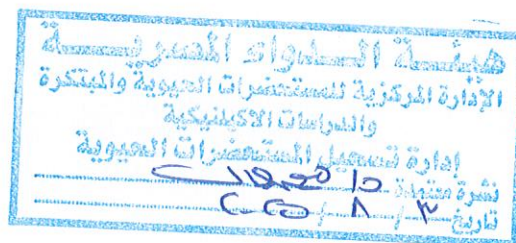 هيئة الدواء المصرية
الإدارة المركزية للمستحضرات الحيوية والمبتكرة
والدراسات الاكلينيكية
إدارة تسجيل المستحضرات الحيوية
نشرة معتمدة د/
تاريخ ٣ / ٨ /